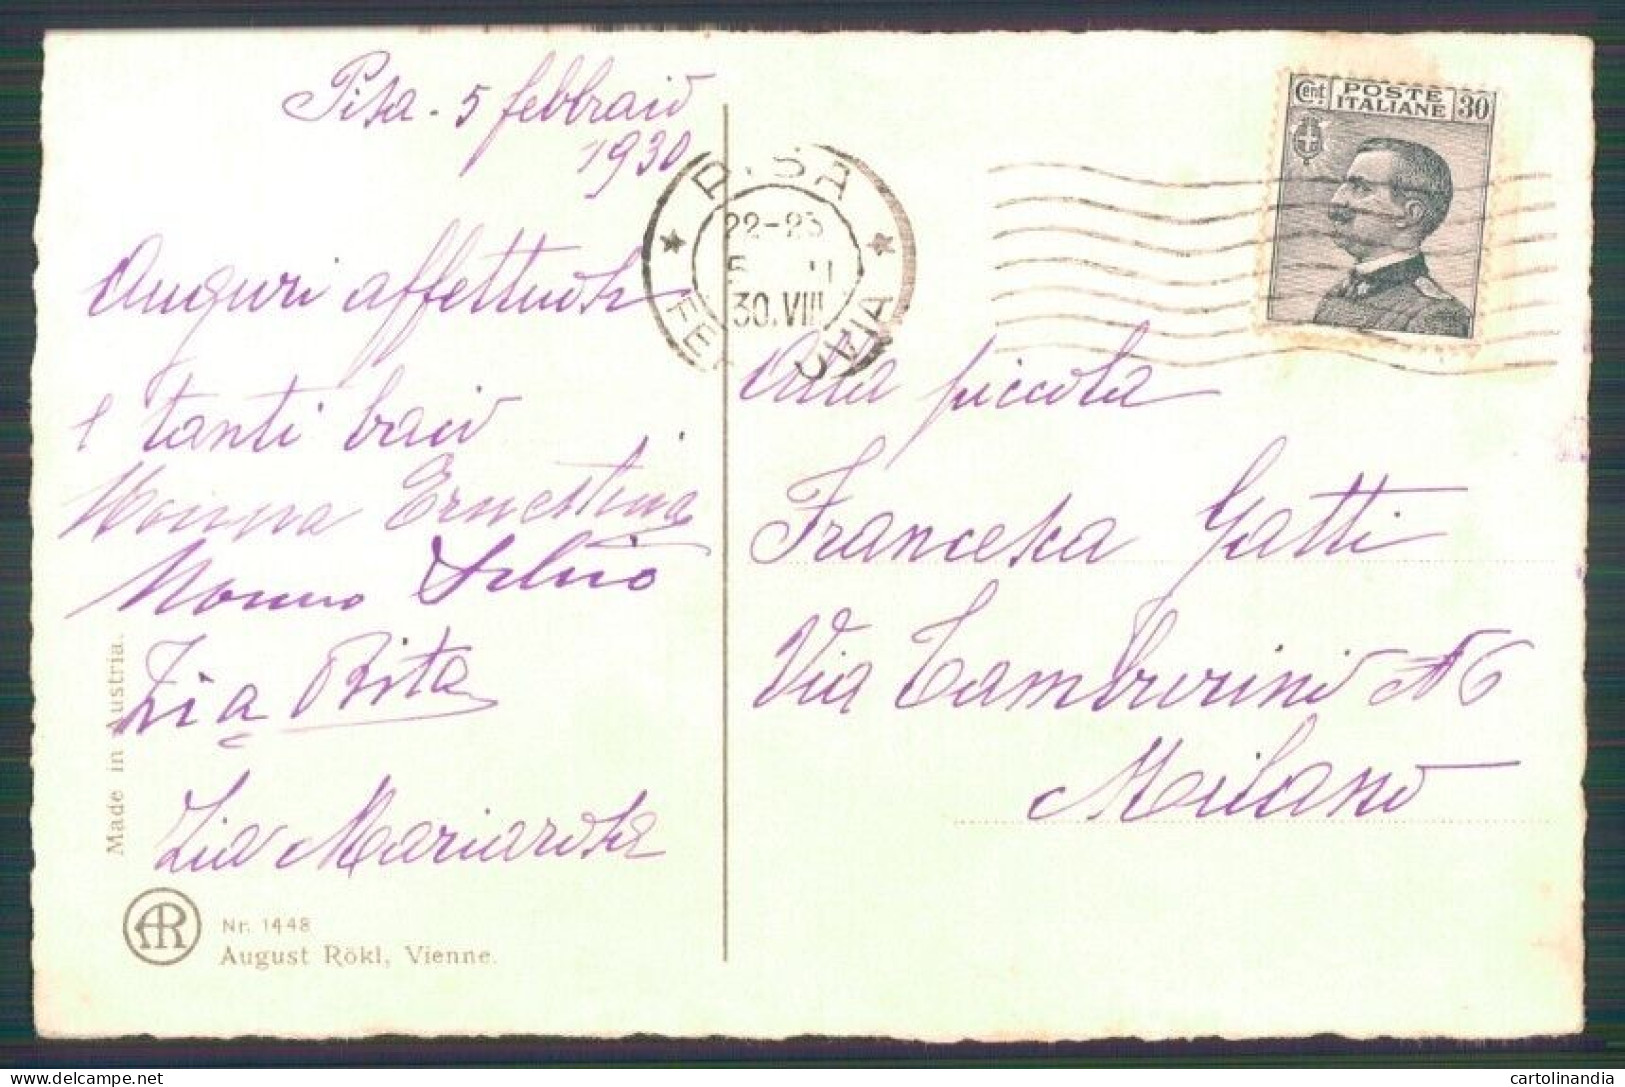 Pisa - 5 febbraio
1930
Auguri affettuosi
e tanti baci
Nonna Ernestina
Nonno Silvio
Zia Rita
Zia Mariarosa
Made in Austria.
AR
Nr. 1448
August Rökl, Vienne.
PISA
22-23
5 II
30.VIII
Cent. POSTE ITALIANE 30
Alla piccola
Francesca Gatti
Via Tamburini N 6
Milano
cartolinandia